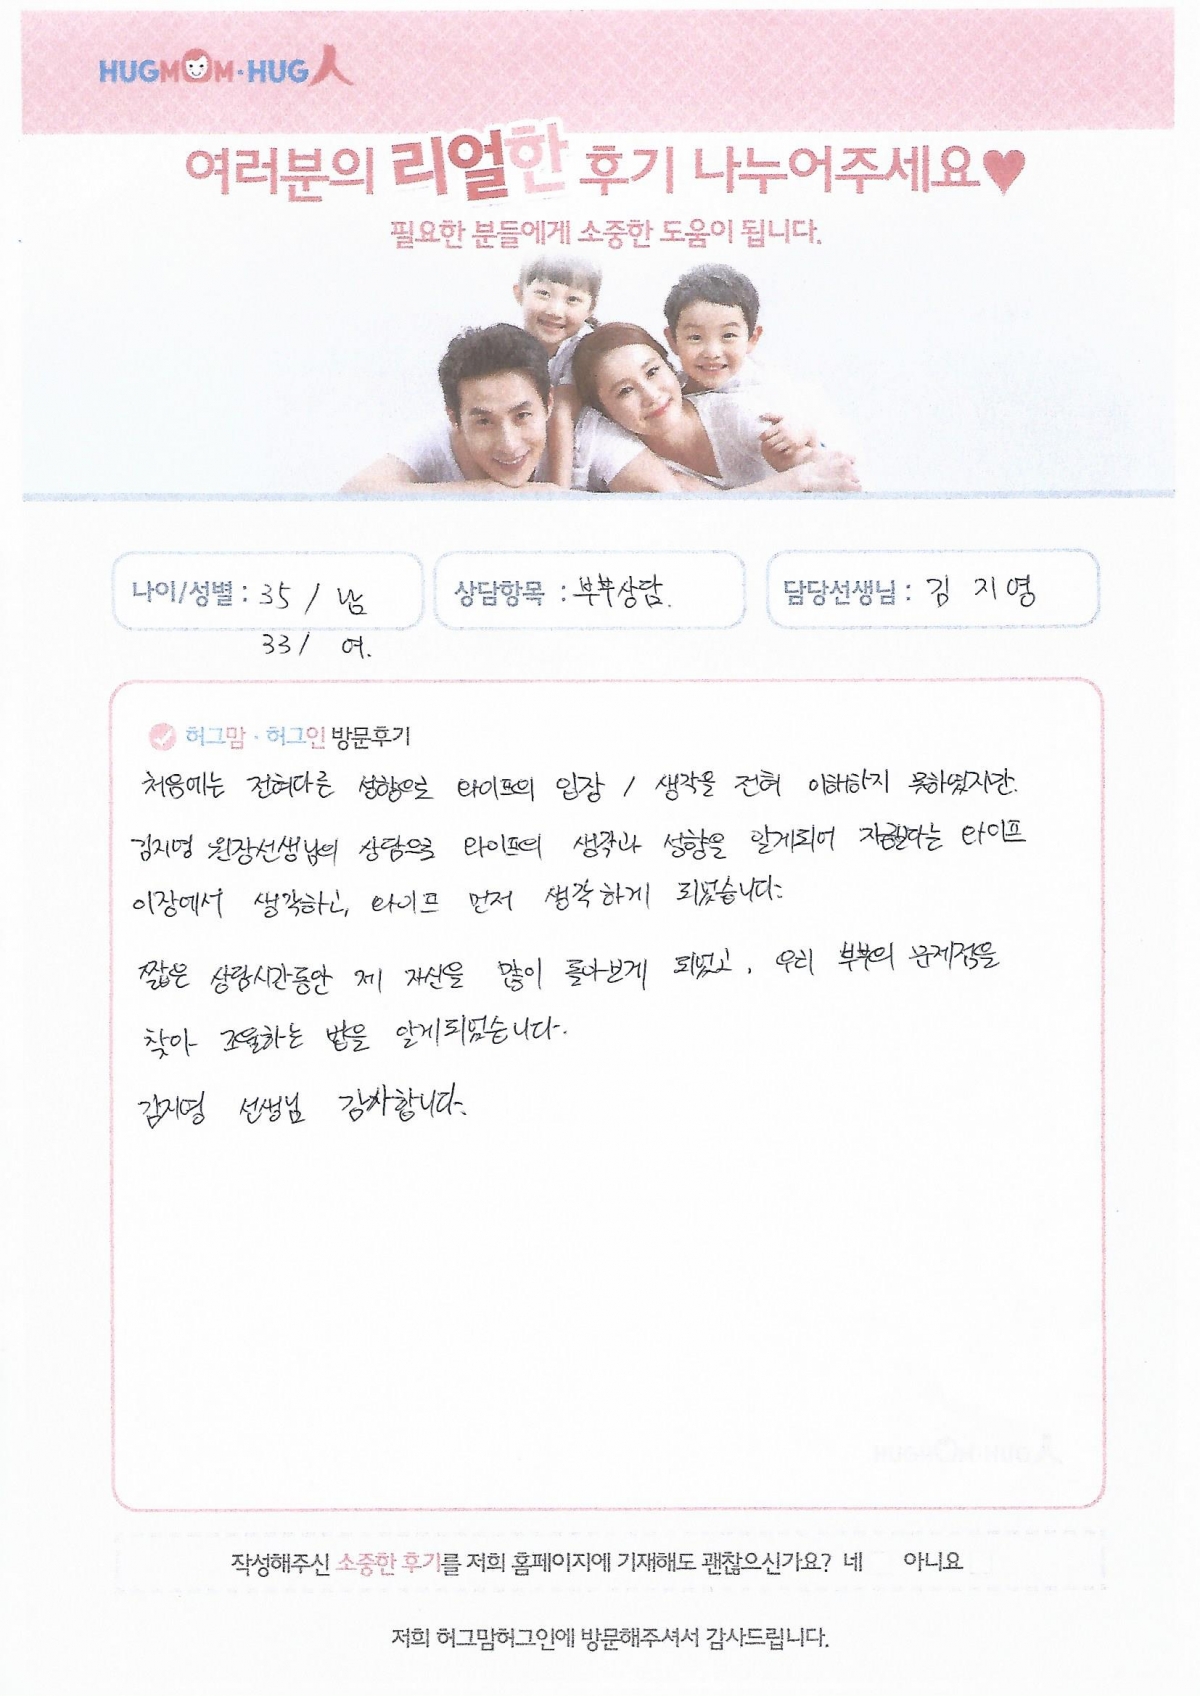 HUGMOM·HUG人
여러분의 리얼한 후기 나누어주세요♥
필요한 분들에게 소중한 도움이 됩니다.
나이/성별 : 35 / 남 상담항목 : 부부상담. 담당선생님 : 김 지영
33 / 여.
허그맘 · 허그인 방문후기
처음에는 전혀다른 성향으로 와이프의 입장 / 생각을 전혀 이해하지 못하였지만.
김지영 원장선생님의 상담으로 와이프의 생각과 성향을 알게되어 와이프
이장에서 생각하고, 와이프 먼저 생각하게 되었습니다.
짧은 상담시간동안 제 자신을 많이 돌아보게 되었고, 우리 부부의 문제점을
찾아 조율하는 법을 알게되었습니다.
김지영 선생님 감사합니다.
작성해주신 소중한 후기를 저희 홈페이지에 기재해도 괜찮으신가요? 네 아니요
저희 허그맘허그인에 방문해주셔서 감사드립니다.